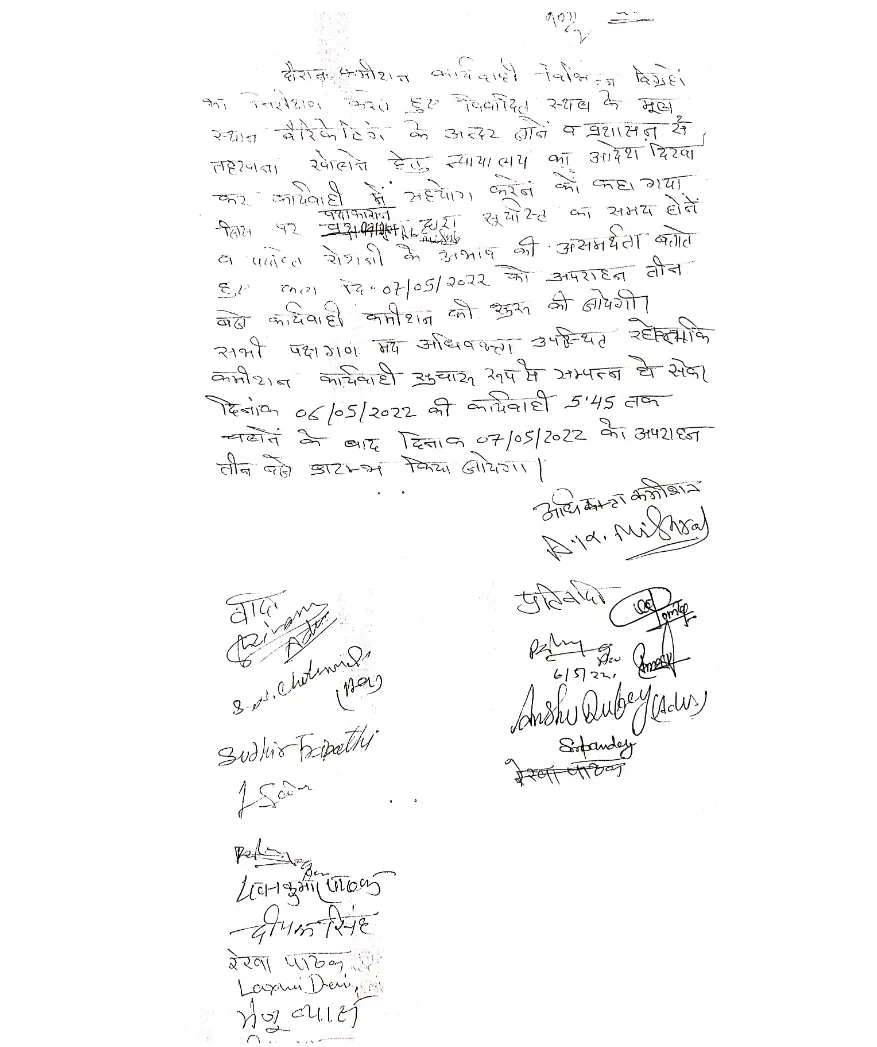 दौरान कमीशन कार्यवाही विभिन्न विग्रहों
का निरीक्षण करते हुए विवादित स्थल के मूल
स्थान बैरिकेटिंग के अन्दर जाने व प्रशासन से
तहखाना खोलने हेतु न्यायालय का आदेश दिखा
कर कार्यवाही में सहयोग करने को कहा गया
जिस पर पक्षकारान द्वारा सूर्यास्त का समय होने
व पर्याप्त रोशनी के अभाव की असमर्थता बताते
हुए कहा दि० 07/05/2022 को अपराहन तीन
बजे कार्यवाही कमीशन की शुरू की जायेगी।
सभी पक्षगण मय अधिवक्ता उपस्थित रहे ताकि
कमीशन कार्यवाही सुचारू रूप से सम्पन्न हो सके।
दिनांक 06/05/2022 की कार्यवाही 5:45 तक
चलने के बाद दिनाक 07/05/2022 को अपराहन
तीन बजे प्रारम्भ किया जायेगा।
अधिवक्ता कमीशन
A.K. Mishra
वादी
प्रतिवादी
Shivam
Adv.
6/5/22
(Adv)
Anshu Dubey (Adv)
Sudhir Tripathi
S.Pandey
रेखा पाठक
पाठक
दीपक सिंह
रेखा पाठक
Laxmi Devi,
मंजू व्यास